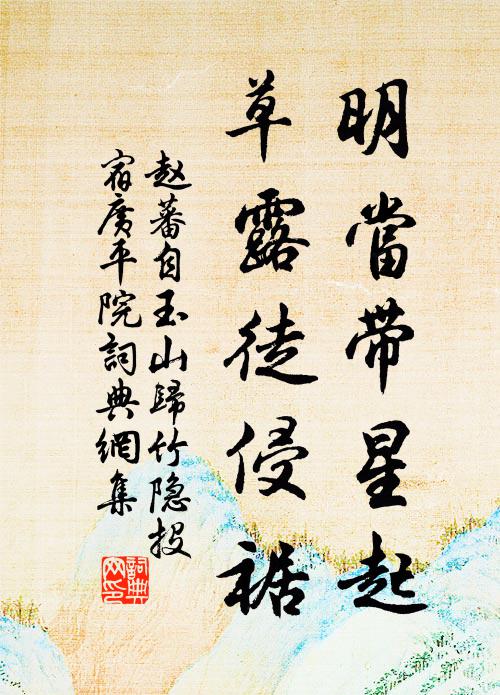 明當带星起
草露徒侵裾
赵蕃自玉山歸竹隐投
宿廣平院詞典網集
詞典
网印